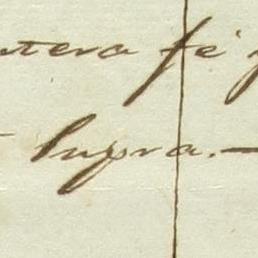 ntera fé
Supra.—